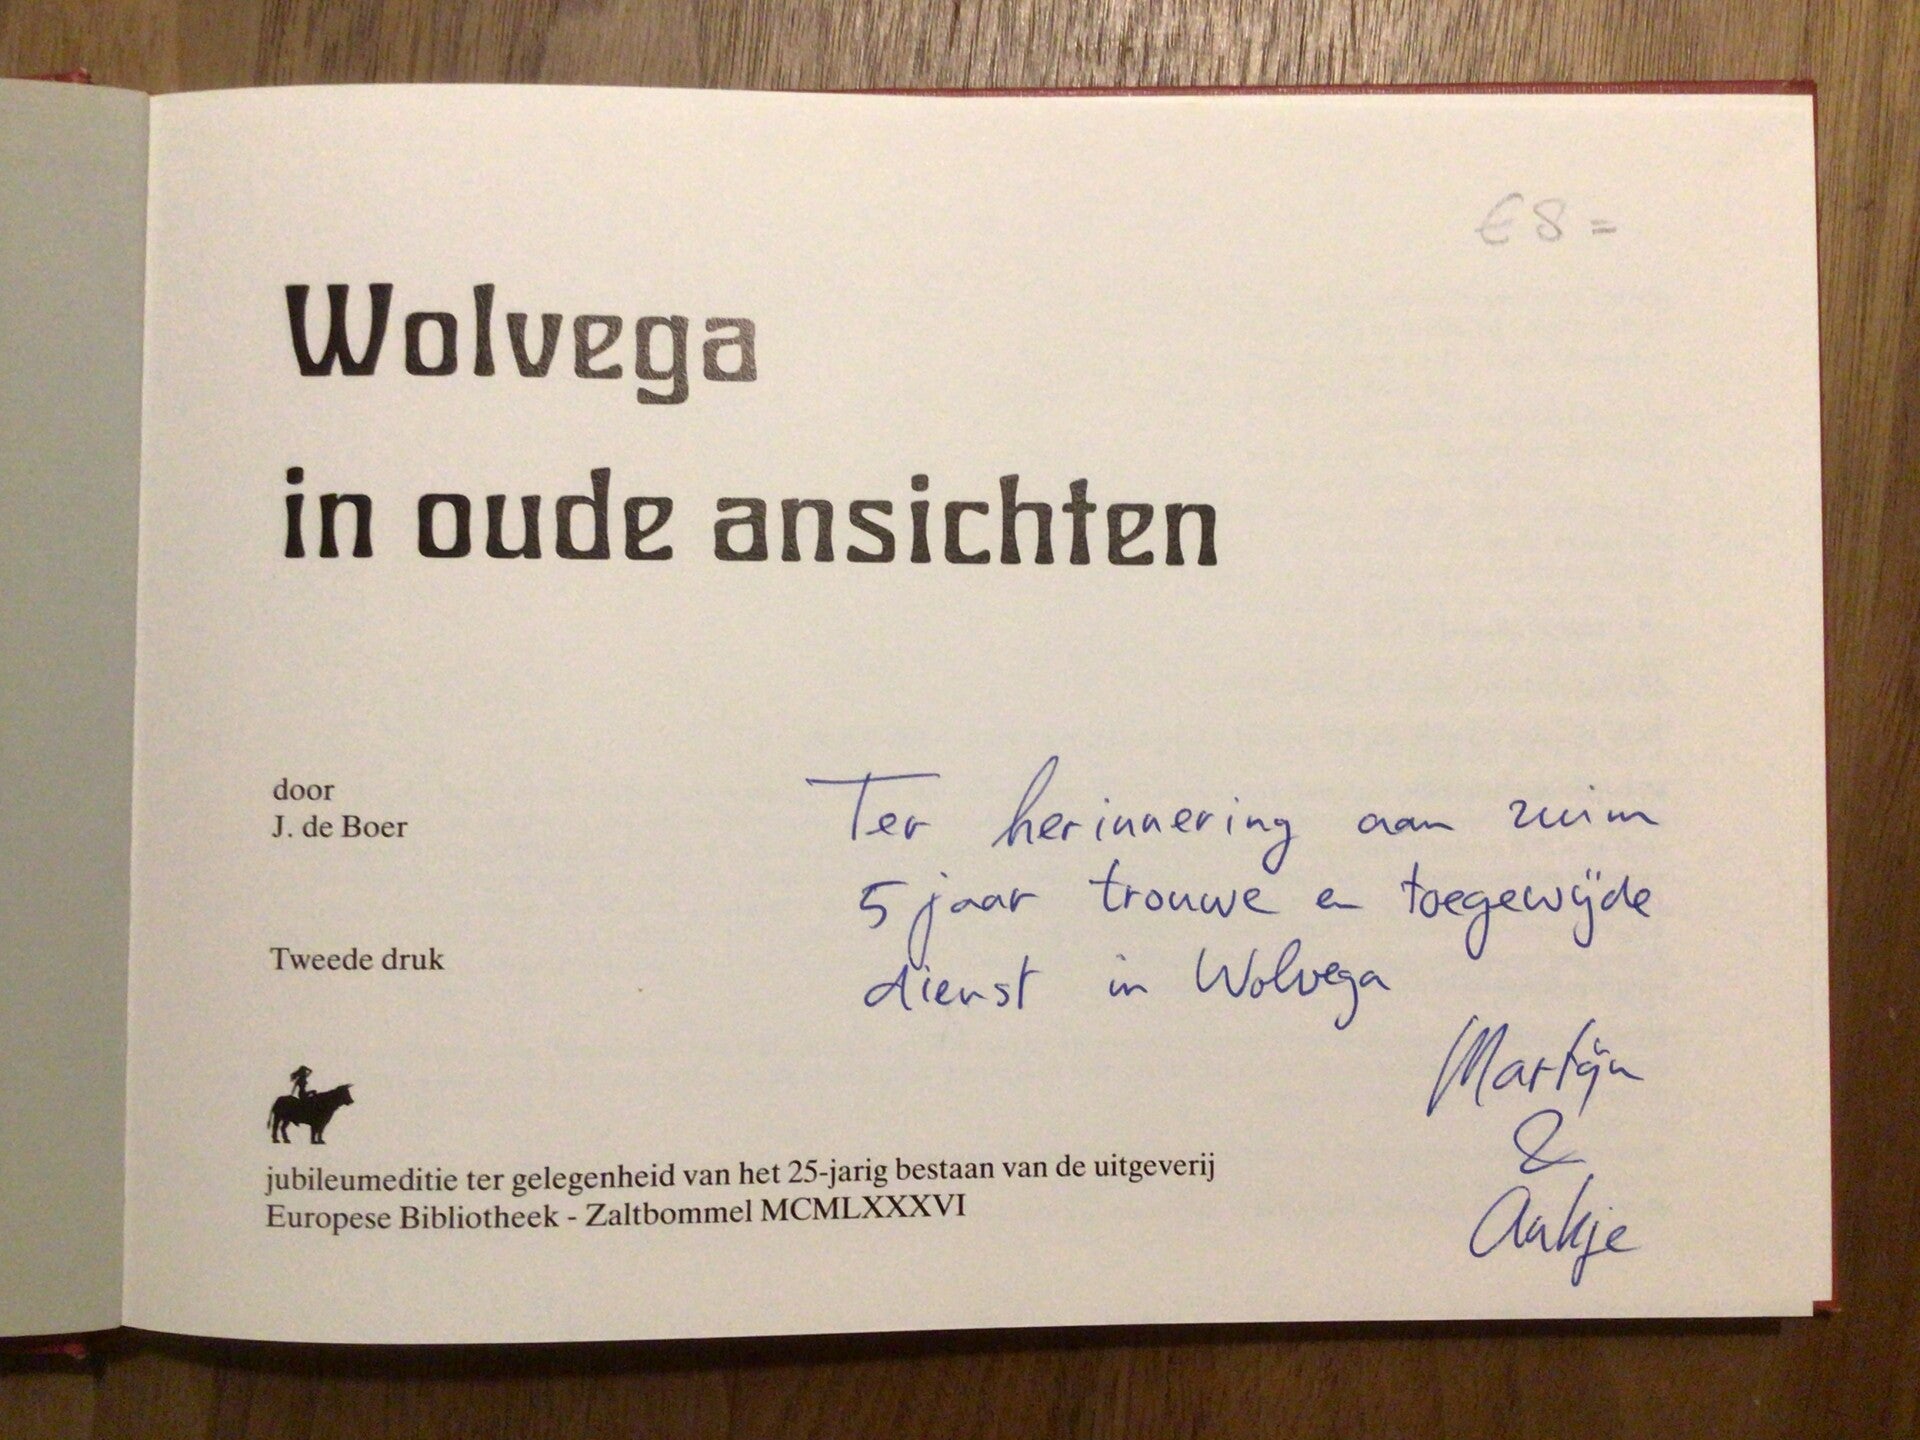 € 8 =
Wolvega
in oude ansichten
door
J. de Boer
Tweede druk
Ter herinnering aan ruim
5 jaar trouwe en toegewijde
dienst in Wolvega
Martijn
&
Aukje
jubileumeditie ter gelegenheid van het 25-jarig bestaan van de uitgeverij
Europese Bibliotheek - Zaltbommel MCMLXXXVI